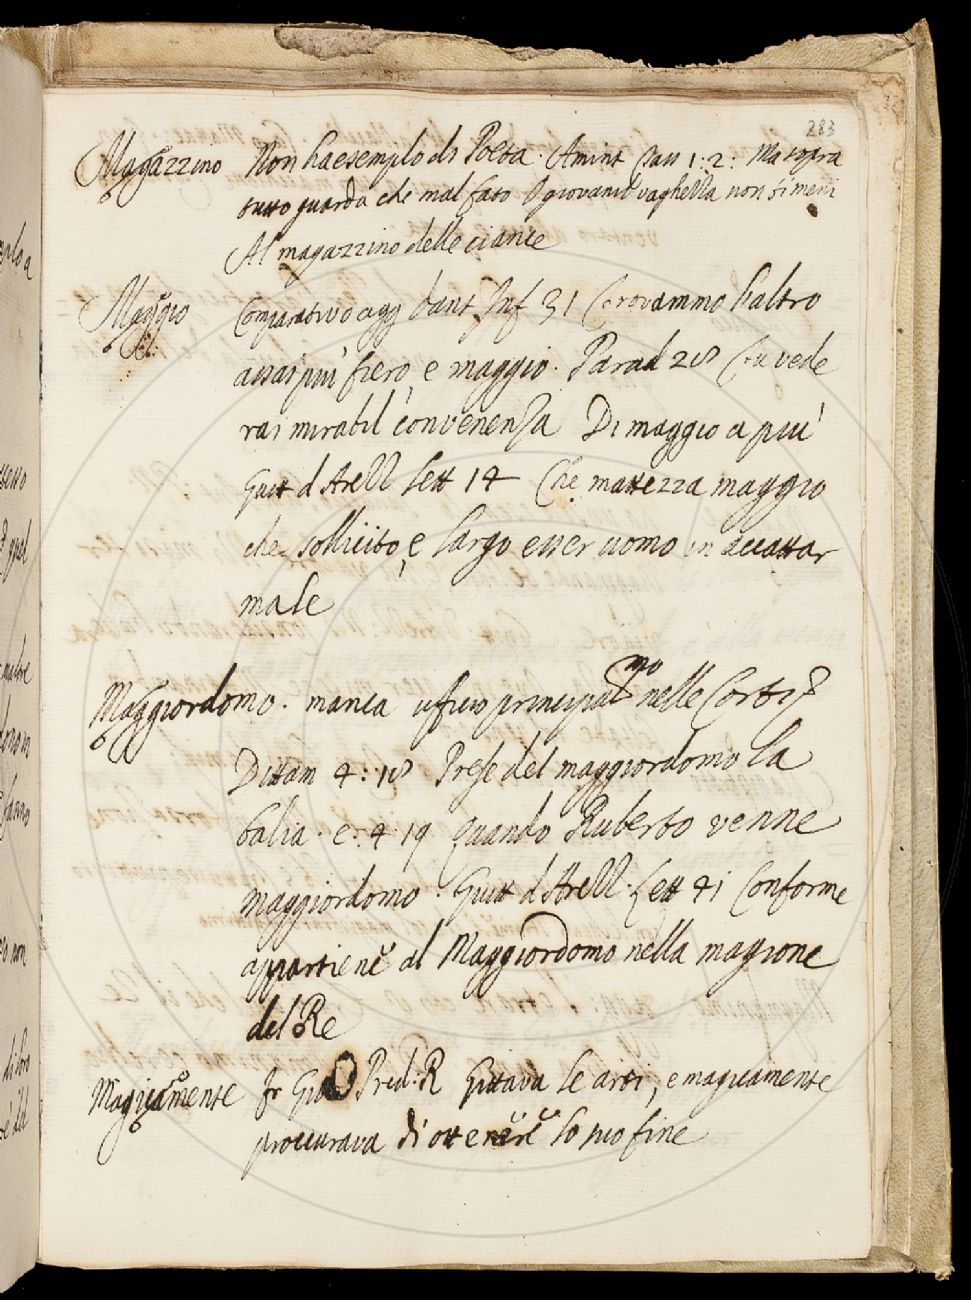 283
Magazzino Non ha esemplo di Poeta. Amint 1. 2: Ma sopra
tutto guarda che mal fato O giovanil vaghezza non ti meni
Al magazzino delle ciance
Maggio Comparativo agg Dant Inf 31 Trovammo l'altro
assai più fiero, e maggio. Parad 28 Tu vede
rai mirabil convenenza Di maggio a più
Guitt d Arezz Lett 14 Che mattezza maggio
che sollicito, e largo esser uomo in accattar
male
Maggiordomo. manca uficio principalmo nelle Corti
Dittam 4: 18 Prese del maggiordomo la
balia. e. 4 19 quando Ruberto venne
maggiordomo. Guitt d Arezz. Lett 41 Conforme
appartiene al Maggiordomo nella magione
del Re
Magicamente Fr Gio Pred. R Gittava le arti, e magicamente
proccurava di ottenere lo suo fine